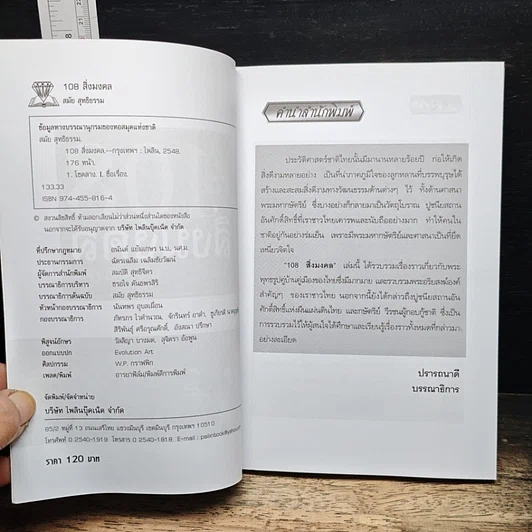 108 สิ่งมงคล
สมัย สุทธิธรรม
ข้อมูลทางบรรณานุกรมของหอสมุดแห่งชาติ
สมัย สุทธิธรรม.
108 สิ่งมงคล.--กรุงเทพฯ : ไพลิน, 2548.
176 หน้า.
1. โชคลาง. I. ชื่อเรื่อง.
133.33
ISBN 974-455-816-4
© สงวนลิขสิทธิ์ ห้ามลอกเลียนไม่ว่าส่วนหนึ่งส่วนใดของหนังสือ
นอกจากจะได้รับอนุญาตจาก บริษัท ไพลินบุ๊คเน็ต จำกัด
ที่ปรึกษากฎหมาย อนันต์ แย้มเกษร น.บ., นศ.ม.
ประธานกรรมการ ฉัตรเฉลิม เฉลิมชัยวัฒน์
ผู้จัดการสำนักพิมพ์ สมบัติ สุทธิจิตร
บรรณาธิการบริหาร ธวยใจ คันธพรสิริ
บรรณาธิการต้นฉบับ สมัย สุทธิธรรม
หัวหน้ากองบรรณาธิการ นันทพร อุบลเผื่อน
กองบรรณาธิการ ภัทรภร ไวคำนวณ, จักรินทร์
สิริพันธุ์ ศรีอรุณศักดิ์, อังสณา ปรึกษา
พิสูจน์อักษร วัลสิญา บางผล, สุจิตรา อ้อพูน
ออกแบบปก Evolution Art
ศิลปกรรม W.P. กราฟฟิก
เพลต/พิมพ์ อารยาฟิล์ม/พิมพ์ดีการพิมพ์
จัดพิมพ์/จัดจำหน่าย
บริษัท ไพลินบุ๊คเน็ต จำกัด
85/2 หมู่ที่ 13 ถนนเสรีไทย แขวงมีนบุรี เขตมีนบุรี กรุงเทพฯ 10510
โทรศัพท์ 0-2540-1919 โทรสาร 0-2540-1818. E-Mail :
ราคา 120 บาท
คำนำสำนักพิมพ์
ประวัติศาสตร์ชาติไทยนั้นมีมานานหลายร้อยปี ก่อให้เกิด
สิ่งดีงามหลายอย่าง เป็นที่น่าภาคภูมิใจของลูกหลานที่บรรพบุรุษได้
สร้างและสะสมสิ่งดีงามทางวัฒนธรรมด้านต่างๆ ไว้ ทั้งด้านศาสนา
พระมหากษัตริย์ ซึ่งบางอย่างก็กลายมาเป็นวัตถุโบราณ ปูชนียสถาน
อันศักดิ์สิทธิ์ที่เราชาวไทยเคารพและนับถืออย่างมาก ทำให้คนใน
ชาติอยู่กันอย่างร่มเย็น เพราะมีพระมหากษัตริย์และศาสนาเป็นที่ยึด
เหนี่ยวจิตใจ
"108 สิ่งมงคล" เล่มนี้ ได้รวบรวมเรื่องราวเกี่ยวกับพระ
พุทธรูปคู่บ้านคู่เมืองของไทยซึ่งมีมากมาย และรวบรวมพระอริยสงฆ์องค์
สำคัญๆ ของเราชาวไทย นอกจากนี้ยังได้กล่าวถึงปูชนียสถานอัน
ศักดิ์สิทธิ์แห่งผืนแผ่นดินไทย และกษัตริย์ วีรชนผู้กอบกู้ชาติ ซึ่งเป็น
การรวบรวมไว้ให้ผู้สนใจได้ศึกษาและเรียนรู้เรื่องราวทั้งหมดที่กล่าวมา
อย่างละเอียด
ปรารถนาดี
บรรณาธิการ